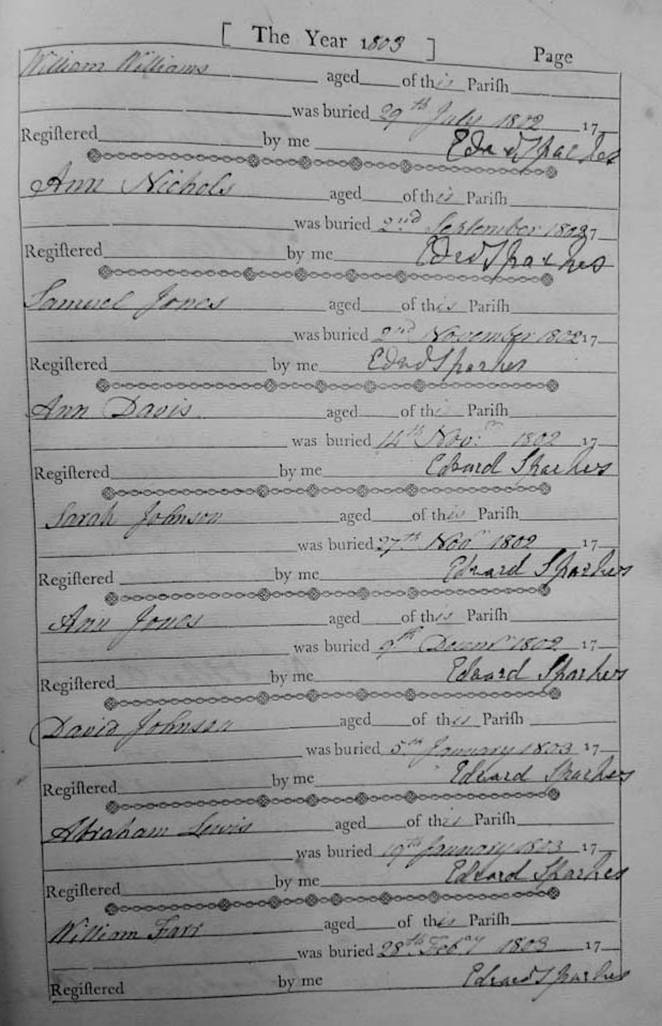 [ The Year 1803 ]
Page
William Williams aged of this Pariſh
was buried 29th July 1802 17
Regiſtered by me Edwd Sparkes
Ann Nichols aged of this Pariſh
was buried 2nd September 1802 17
Regiſtered by me Edwd Sparkes
Samuel Jones aged of this Pariſh
was buried 2nd November 1802 17
Regiſtered by me Edwd Sparkes
Ann Davis aged of this Pariſh
was buried 14th Novr 1802 17
Regiſtered by me Edward Sparkes
Sarah Johnson aged of this Pariſh
was buried 27th Novr 1802 17
Regiſtered by me Edward Sparkes
Ann Jones aged of this Pariſh
was buried 9th Decemr 1802 17
Regiſtered by me Edward Sparkes
David Johnson aged of this Pariſh
was buried 5th January 1803 17
Regiſtered by me Edward Sparkes
Abraham Lewis aged of this Pariſh
was buried 19th January 1803 17
Regiſtered by me Edward Sparkes
William Farr aged of this Pariſh
was buried 28th Feby 1803 17
Regiſtered by me Edward Sparkes